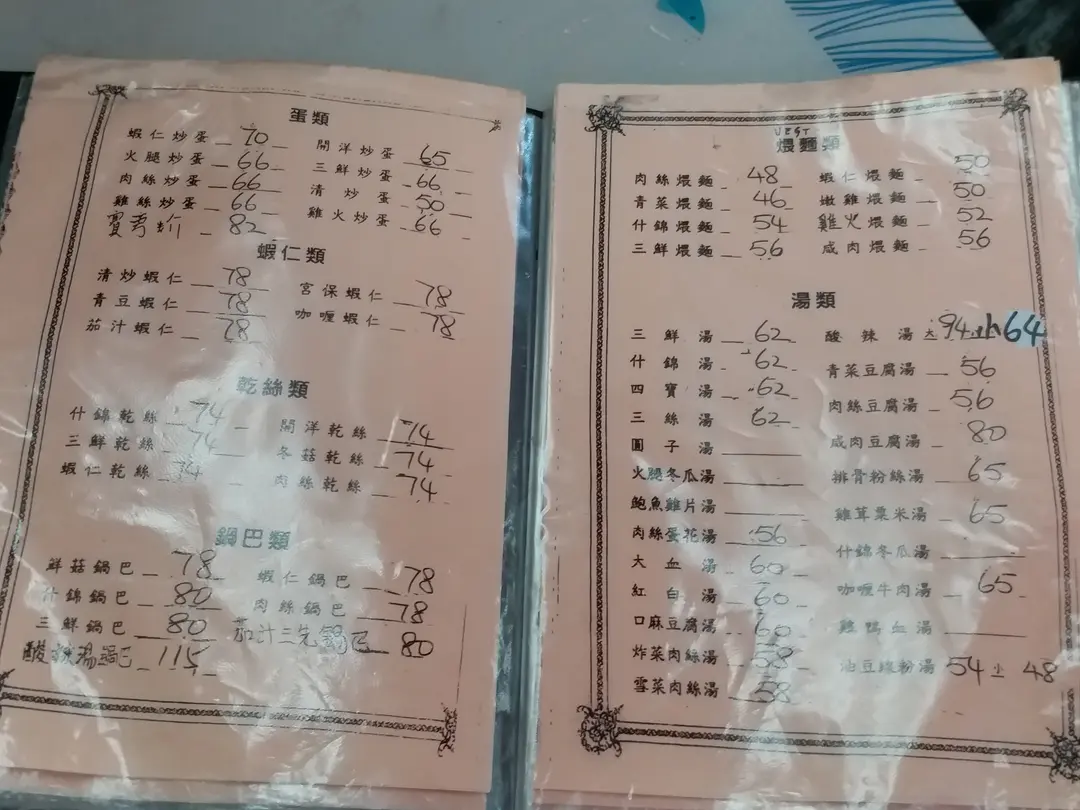 蛋類
蝦仁炒蛋 70 開洋炒蛋 65
火腿炒蛋 66 三鮮炒蛋 66
肉絲炒蛋 66 清炒蛋 50
雞絲炒蛋 66 雞火炒蛋 66
82
蝦仁類
清炒蝦仁 78 宮保蝦仁 78
青豆蝦仁 78 咖喱蝦仁 78
茄汁蝦仁 78
乾絲類
什錦乾絲 74 開洋乾絲 74
三鮮乾絲 74 冬菇乾絲 74
蝦仁乾絲 74 肉絲乾絲 74
鍋巴類
鮮菇鍋巴 78 蝦仁鍋巴 78
什錦鍋巴 80 肉絲鍋巴 78
三鮮鍋巴 80 茄汁三先鍋巴 80
酸辣湯鍋巴 115
煨麵類
肉絲煨麵 48 蝦仁煨麵 50
青菜煨麵 46 嫩雞煨麵 50
什錦煨麵 54 雞火煨麵 52
三鮮煨麵 56 咸肉煨麵 56
湯類
三鮮湯 62 酸辣湯 大 94 小 64
什錦湯 62 青菜豆腐湯 56
四寶湯 62 肉絲豆腐湯 56
三絲湯 62 咸肉豆腐湯 80
圓子湯 排骨粉絲湯 65
火腿冬瓜湯 雞茸粟米湯 65
鮑魚雞片湯 什錦冬瓜湯
肉絲蛋花湯 56 咖喱牛肉湯 65
大血湯 60 雞鴨血湯
紅白湯 60 油豆線粉湯 54 小 48
口麻豆腐湯 60
炸菜肉絲湯 58
雪菜肉絲湯 58